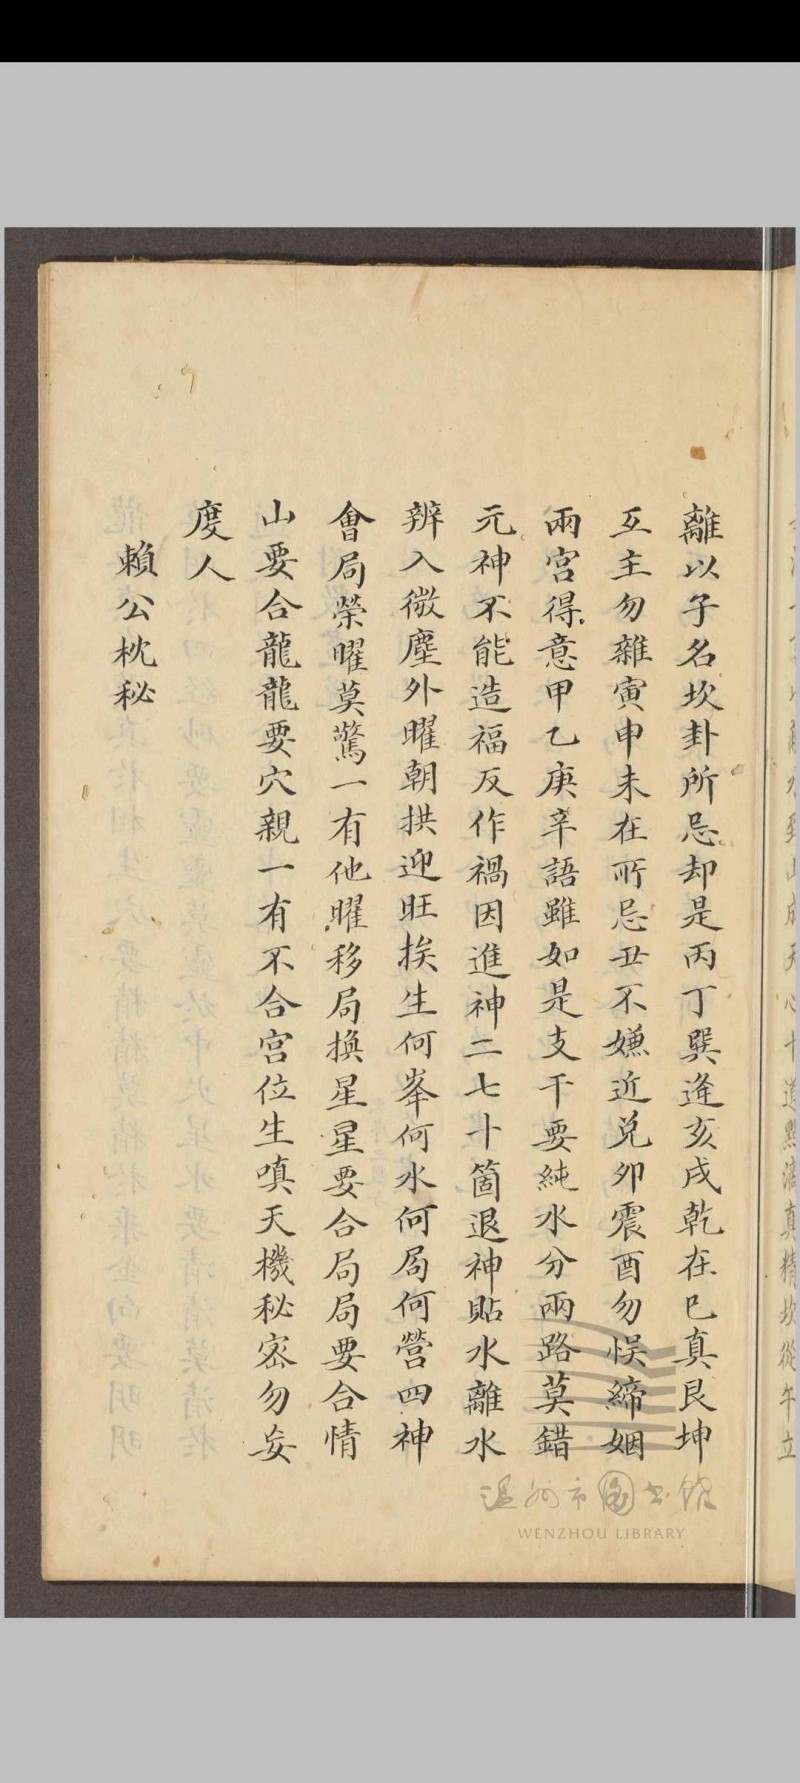 離以子名坎卦所忌却是丙丁巽逢亥戌乾在巳真艮坤
互主勿雜寅申未在所忌丑不嫌近兌卯震酉勿悮締姻
兩宮得意甲乙庚辛語雖如是支干要純水分兩路莫錯
元神不能造福反作禍因進神二七十箇退神貼水離水
辨入微塵外曜朝拱迎旺挨生何峯何水何局何營四神
會局榮曜莫驚一有他曜移局換星星要合局局要合情
山要合龍龍要穴親一有不合宮位生嗔天機秘密勿妄
度人
賴公枕秘
温州市图书馆
WENZHOU LIBRARY